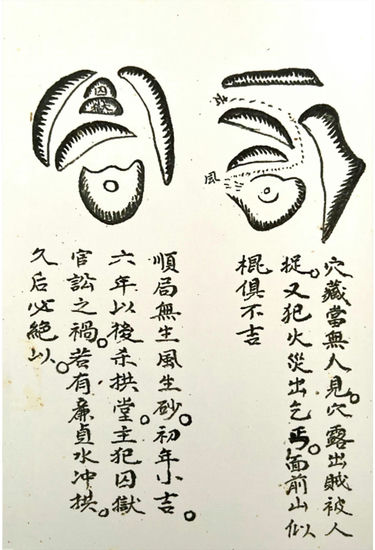 風
穴藏當無人見。穴露出賊被人
捉。又犯火災出乞丐。面前山似
棍俱不吉
囚
順局無生風生砂。初年小吉。
六年以後杀拱堂主犯囚獄
官訟之禍。若有廉貞水冲拱。
久后必絕以。